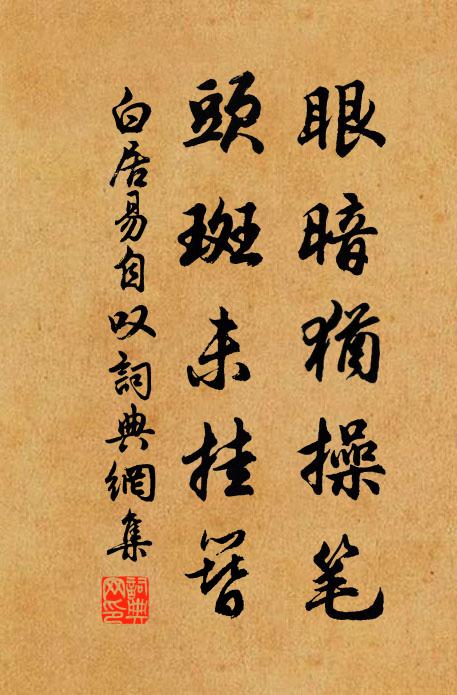 眼暗猶操笔
頭斑未挂簪
白居易自叹詞典網集
詞典网印